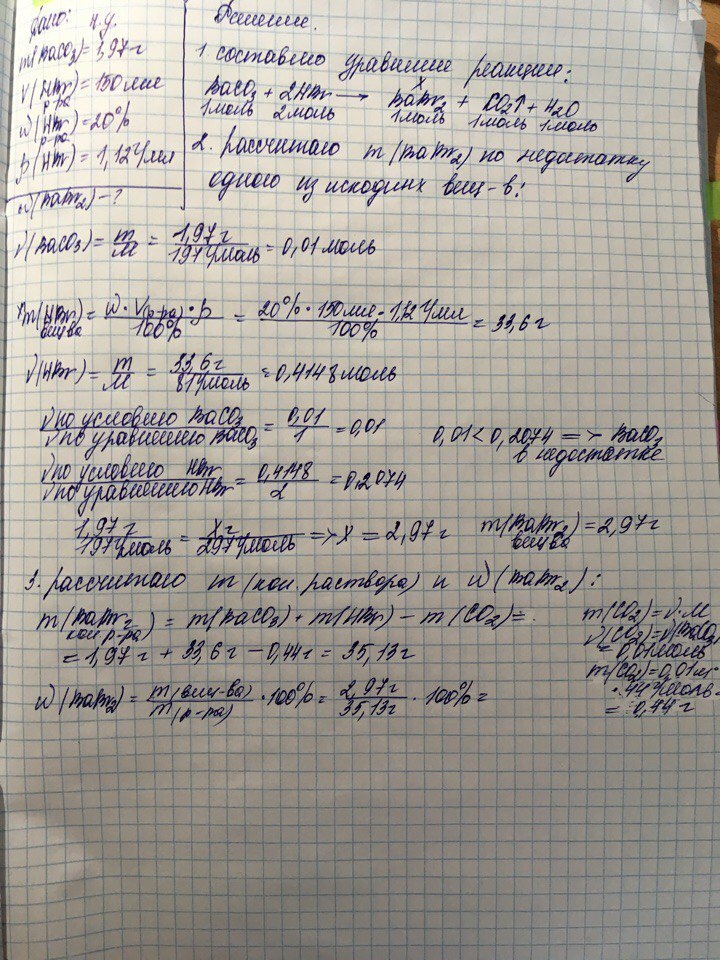 Дано: н.у.
m(BaCO3) = 1,97 г
V(HBr) р-ра = 150 мл
ω(HBr) р-ра = 20%
ρ(HBr) = 1,12 г/мл
ω(BaBr2) - ?
Решение.
1 составлю уравнение реакции:
x
BaCO3 + 2HBr → BaBr2 + CO2↑ + H2O
1моль 2моль 1моль 1моль 1моль
2. рассчитаю m(BaBr2) по недостатку
одного из исходнх вещ-в:
ν(BaCO3) = m/M = 1,97 г/197 г/моль = 0,01 моль
m(HBr) вещ-ва = ω · V(р-ра) · ρ/100% = 20% · 150 мл · 1,12 г/мл/100% = 33,6 г
ν(HBr) = m/M = 33,6 г/81 г/моль = 0,4148 моль
ν по условию BaCO3/ν по уравнению BaCO3 = 0,01/1 = 0,01 0,01 < 0,2074 => BaCO3
в недостатке
ν по условию HBr/ν по уравнению HBr = 0,4148/2 = 0,2074
1,97 г/197 г/моль = x г/297 г/моль => x = 2,97 г m(BaBr2) вещ-ва = 2,97 г
3. рассчитаю m(кон. раствора) и ω(BaBr2):
m(BaBr2 кон р-ра) = m(BaCO3) + m(HBr) - m(CO2) =
= 1,97 г + 33,6 г - 0,44 г = 35,13 г
ω(BaBr2) = m(вещ-ва)/m(р-ра) · 100% = 2,97 г/35,13 г · 100% =
m(CO2) = ν · M
ν(CO2) = ν(BaCO3)
= 0,01 моль
m(CO2) = 0,01 м
· 44 г/моль =
= 0,44 г